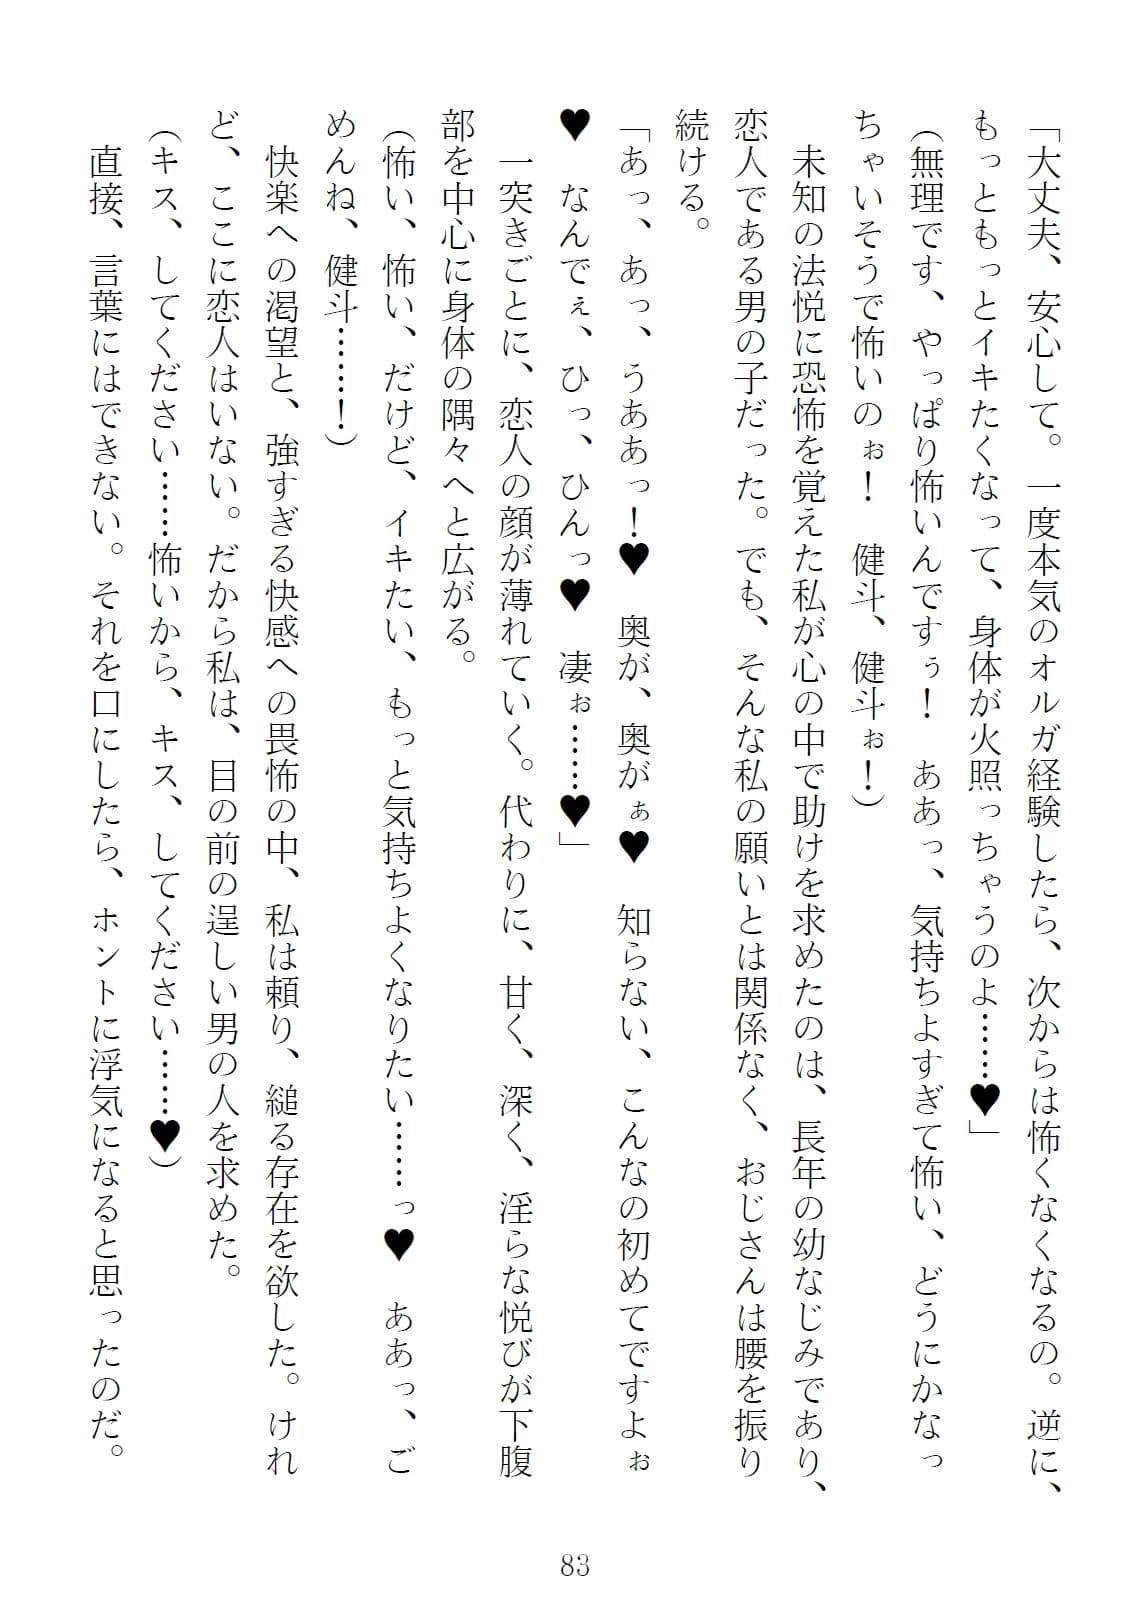 「大丈夫、安心して。一度本気のオルガ経験したら、次からは怖くなくなるの。逆に、
もっともっとイキたくなって、身体が火照っちゃうのよ……♥」
（無理です、やっぱり怖いんですぅ！　ああっ、気持ちよすぎて怖い、どうにかなっ
ちゃいそうで怖いのぉ！　健斗、健斗ぉ！）
　未知の法悦に恐怖を覚えた私が心の中で助けを求めたのは、長年の幼なじみであり、
恋人である男の子だった。でも、そんな私の願いとは関係なく、おじさんは腰を振り
続ける。
「あっ、あっ、うああっ！♥　奥が、奥がぁ♥　知らない、こんなの初めてですよぉ
♥　なんでぇ、ひっ、ひんっ♥　凄ぉ……♥」
　一突きごとに、恋人の顔が薄れていく。代わりに、甘く、深く、淫らな悦びが下腹
部を中心に身体の隅々へと広がる。
（怖い、怖い、だけど、イキたい、もっと気持ちよくなりたい……っ♥　ああっ、ご
めんね、健斗……！）
　快楽への渇望と、強すぎる快感への畏怖の中、私は頼り、縋る存在を欲した。けれ
ど、ここに恋人はいない。だから私は、目の前の逞しい男の人を求めた。
（キス、してください……怖いから、キス、してください……♥）
　直接、言葉にはできない。それを口にしたら、ホントに浮気になると思ったのだ。
83